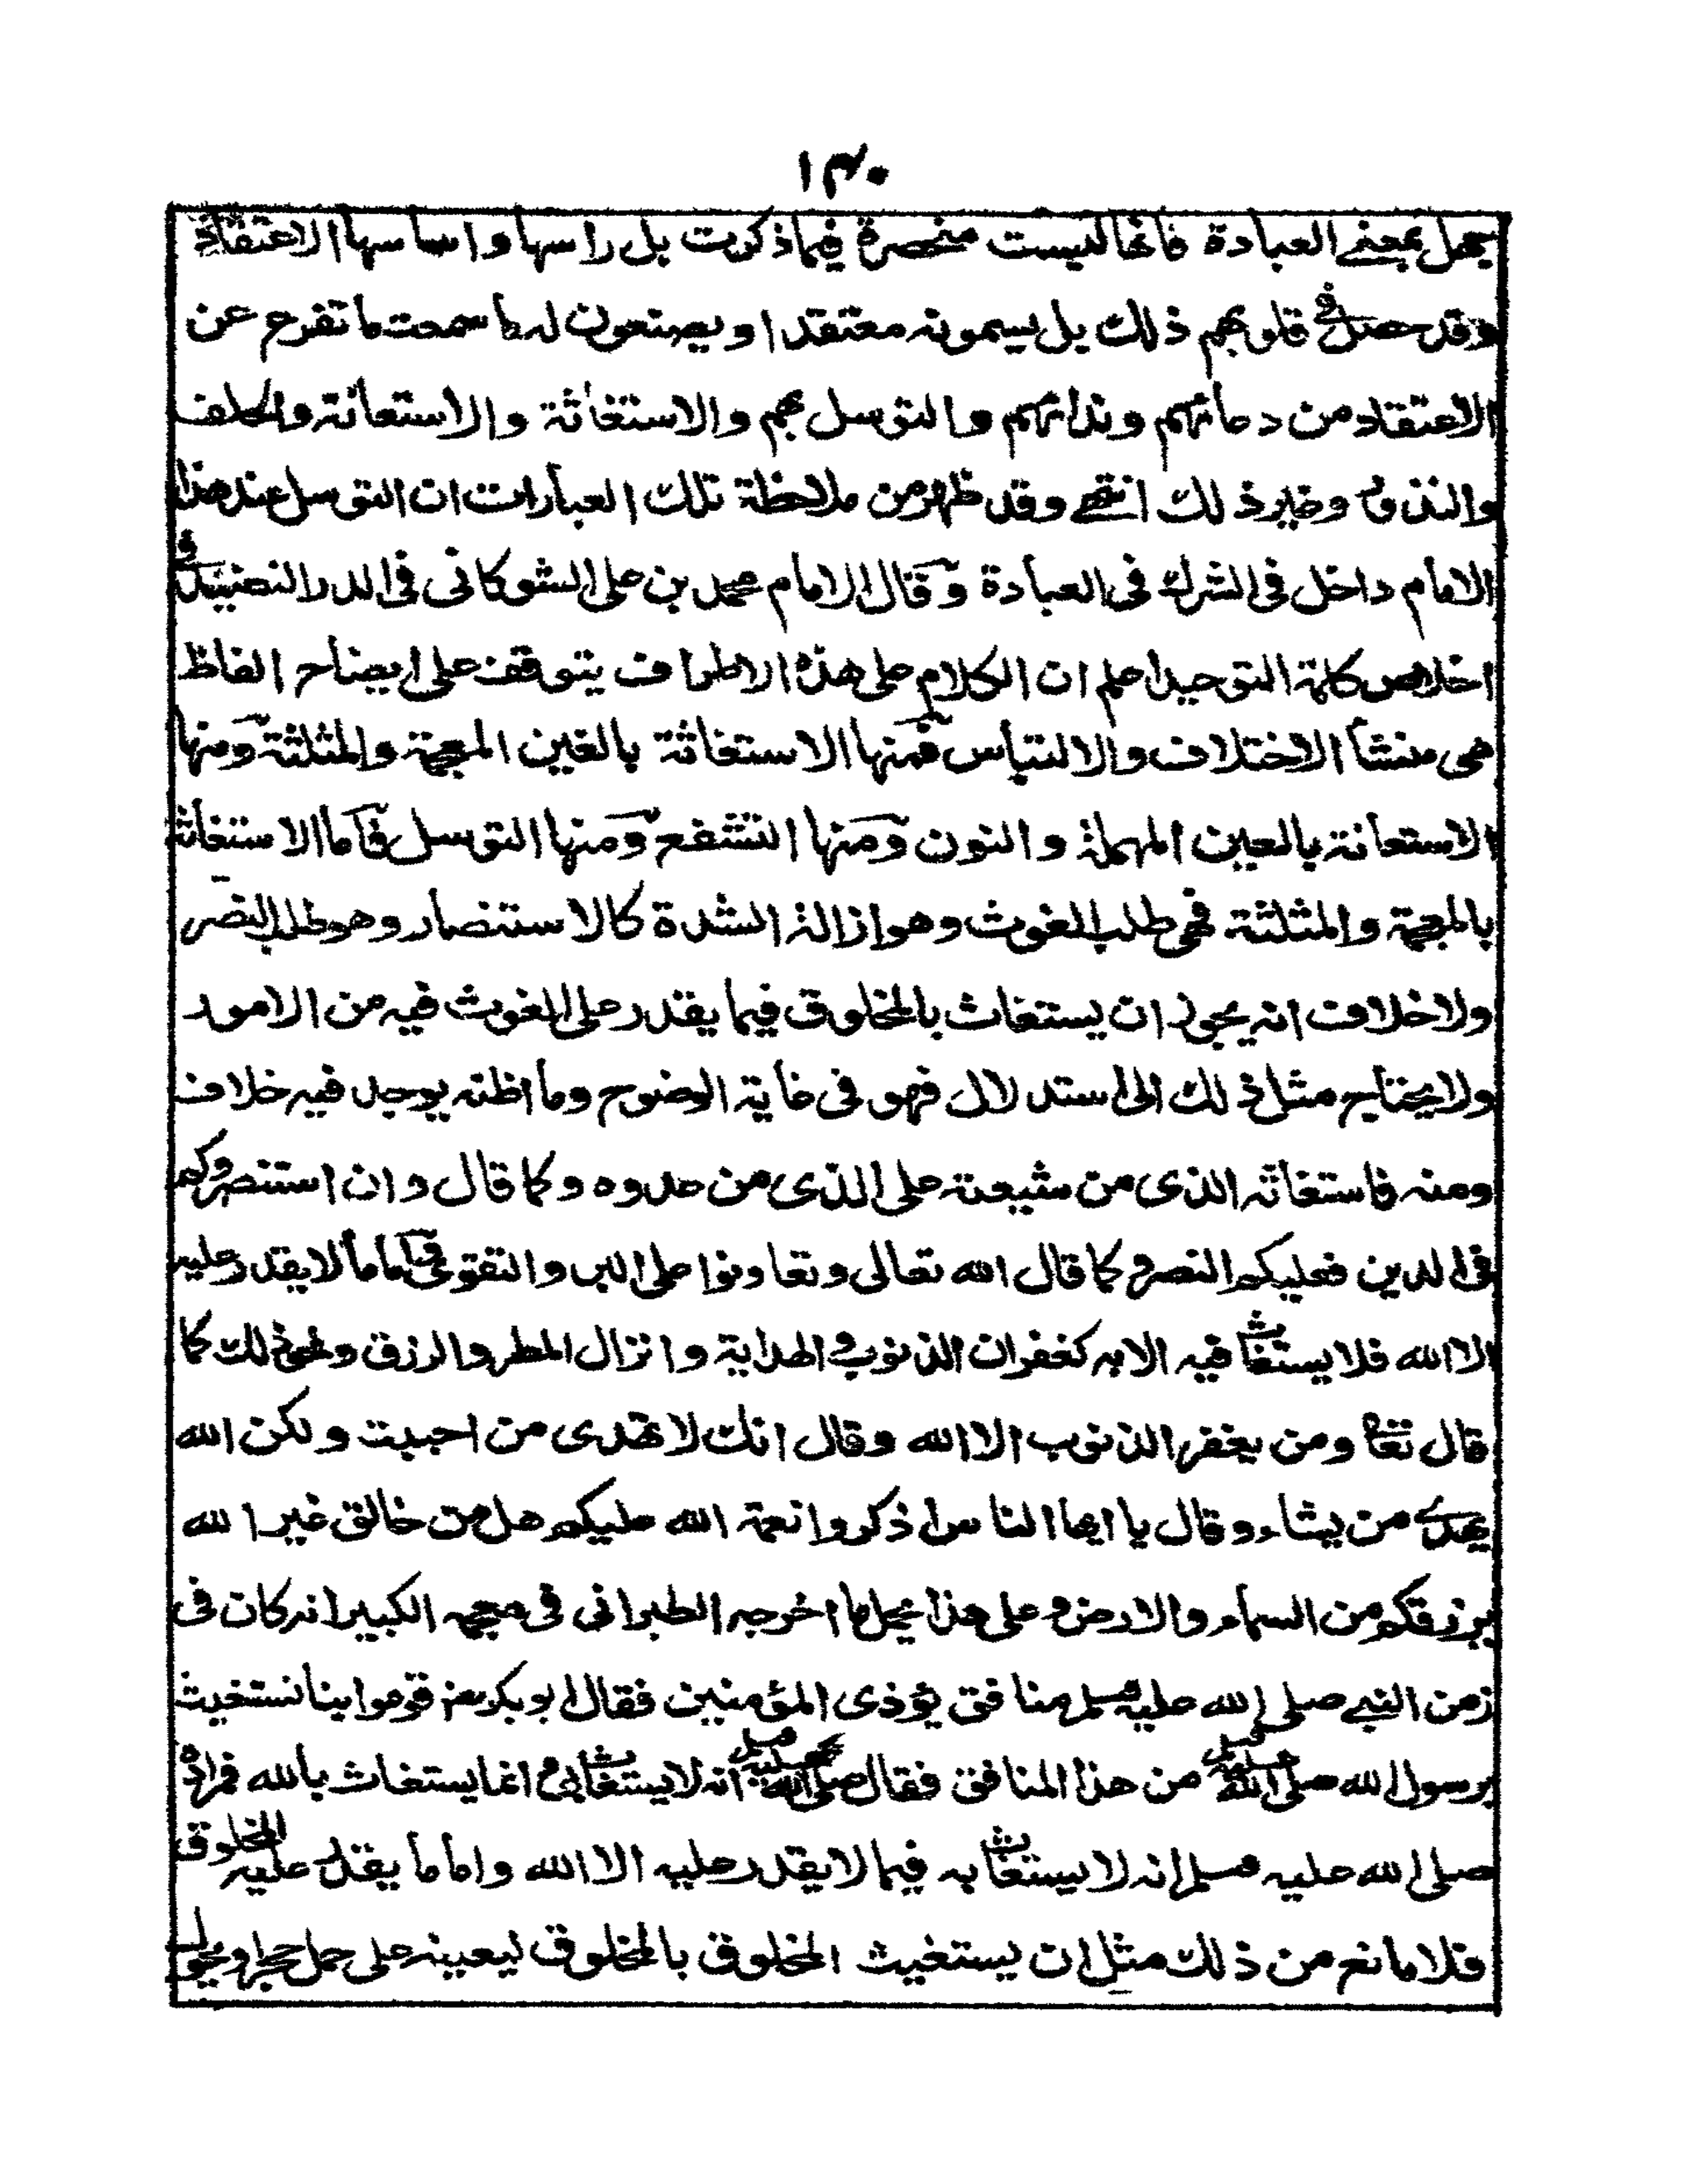 ۱۴۰
جهل بمعنے العبادة فانها ليست منحصرة فيما ذكرت بل راسها واساسها الاعتقاد
وقد حصل فى قلوبهم ذلك بل يسمونه معتقدا و يصنعون له ما سمعت ما تفرع عن
الاعتقاد من دعائهم وندائهم والتوسل بهم والاستغاثة والاستعانة والحلف
والنذور وغير ذلك انتهے وقد ظهر من ملاحظة تلك العبارات ان التوسل عند هذا
الامام داخل فى الشرك فى العبادة وقال الامام محمد بن على الشوكانى فى الدر النضيد فى
اخلاص كلمة التوحيد اعلم ان الكلام على هذه الاطراف يتوقف على ايضاح الفاظ
هى منشأ الاختلاف والالتباس فمنها الاستغاثة بالغين المعجمة والمثلثة ومنها
الاستعانة بالعين المهملة والنون ومنها التشفع ومنها التوسل فاما الاستغاثة
بالمعجمة والمثلثة فهى طلب الغوث وهو ازالة الشدة كالاستنصار وهو طلب النصر
ولا خلاف انه يجوز ان يستغاث بالمخلوق فيما يقدر على الغوث فيه من الامور
ولا يحتاج مثل ذلك الى استدلال فهو فى غاية الوضوح وما اظنه يوجد فيه خلاف
ومنه فاستغاثه الذى من شيعته على الذى من عدوه وكما قال وان استنصروكم
فى الدين فعليكم النصر وكما قال الله تعالى وتعاونوا على البر والتقوى فاما ما لا يقدر عليه
الا الله فلا يستغاث فيه الا به كغفران الذنوب والهداية وانزال المطر والرزق ونحو ذلك كما
قال تعا ومن يغفر الذنوب الا الله وقال انك لا تهدى من احببت ولكن الله
يهدے من يشاء وقال يا ايها الناس اذكروا نعمة الله عليكم هل من خالق غير الله
يرزقكم من السماء والارض وعلى هذا يحمل ما اخرجه الطبرانى فى معجمه الكبير انه كان فى
زمن النبے صلى الله عليه وسلم منافق يؤذى المؤمنين فقال ابو بكر رضـ قوموا بنا نستغيث
برسول الله صلى الله عليه وسلم من هذا المنافق فقال صلى الله عليه وسلم انه لا يستغاث بى وانما يستغاث بالله فمراده
صلى الله عليه وسلم انه لا يستغاث به فيما لا يقدر عليه الا الله واما ما يقدر عليه المخلوق
فلا مانع من ذلك مثل ان يستغيث المخلوق بالمخلوق ليعينه على حمل حجر او يحول